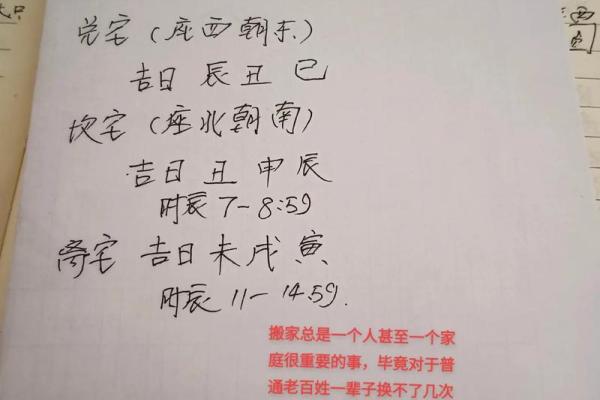 兑宅(座西朝东)
吉日 辰丑巳
坎宅(座北朝南)
吉日 丑申辰
时辰 7-8:59
离宅 吉日 未戌寅
时辰 11-14.59.
搬家总是一个人甚至一个家
庭很重要的事，毕竟对于普
通老百姓一辈子换不了几次